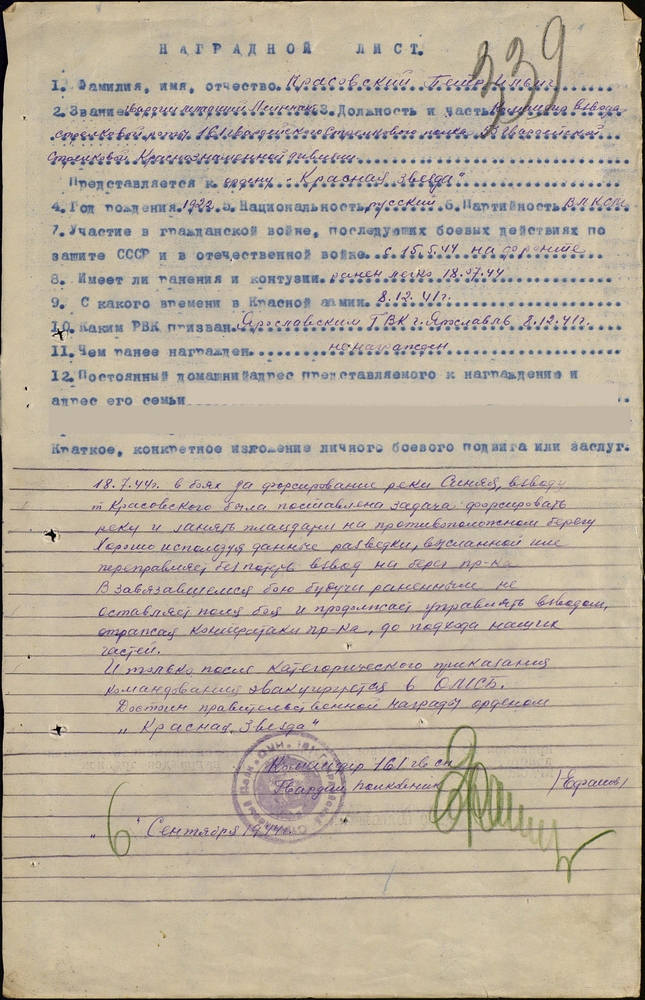 НАГРАДНОЙ ЛИСТ.
339
1. Фамилия, имя, отчество Красовский Петр
2. Звание гвардии младший Лейтенант 3. Должность и часть Командир взвода
стрелковой роты 161 гвардейского стрелкового полка 53 Гвардейской
Стрелковой Краснознаменной дивизии
Представляется к ордену „Красная Звезда"
4. Год рождения 1922 5. Национальность русский 6. Партийность ВЛКСМ
7. Участие в гражданской войне, последующих боевых действиях по
защите СССР и в отечественной войне с 15.5.44 на фронте
8. Имеет ли ранения и контузии ранен легко 18.07.44
9. С какого времени в Красной армии 8.12.41г.
10. Каким РВК призван Ярославским ГВК г. Ярославль 8.12.41г.
11. Чем ранее награжден ненагражден
12. Постоянный домашний адрес представляемого к награждению и
адрес его семьи
Краткое, конкретное изложение личного боевого подвига или заслуг.
18.7.44г. в боях за форсирование реки Синяя, взводу
т Красовского была поставлена задача форсировать
реку и занять плацдарм на противоположном берегу
Хорошо используя данные разведки, высланной им
переправляет без потерь взвод на берег пр-ка.
В завязавшемся бою будучи раненным не
оставляет поля боя и продолжает управлять взводом,
отражая контратаки пр-ка, до подхода наших
частей.
И только после категорического приказания
командования эвакуируется в ОМСБ.
Достоин правительственной награды орденом
„Красная Звезда"
Командир 161 гв сп
Гвардии полковник /Ефанов/
„6" Сентября 1944г.